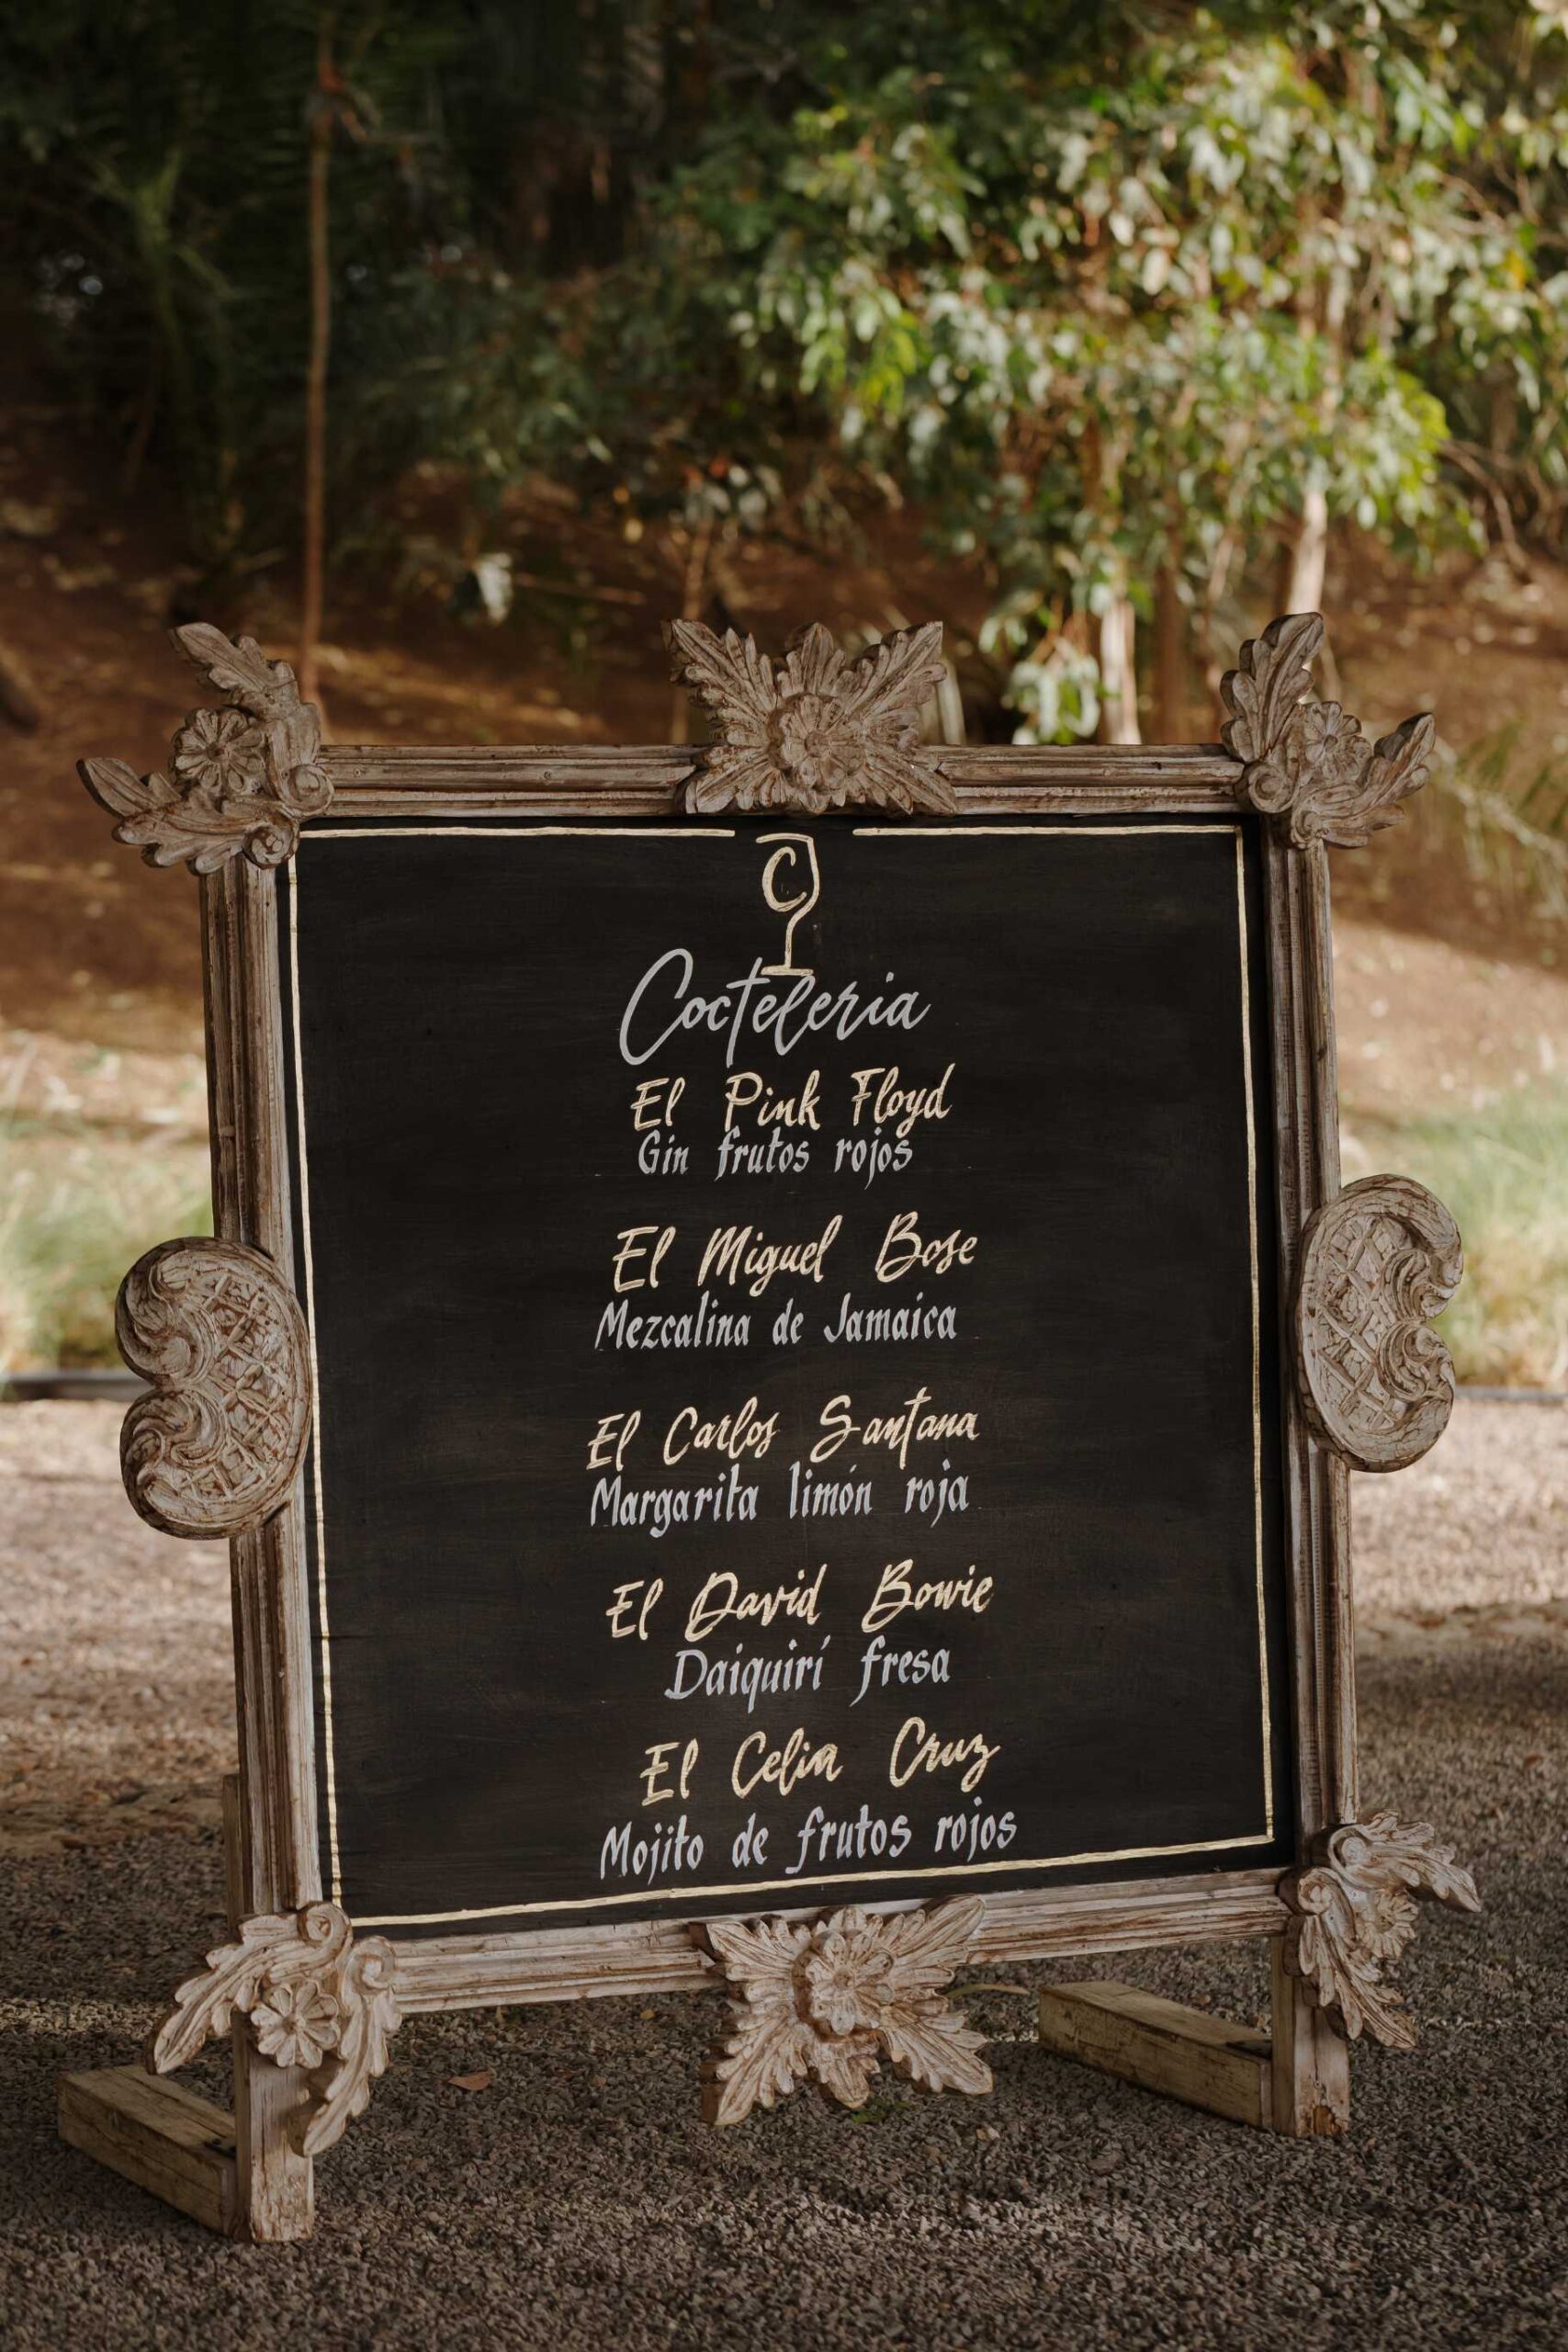 C
Cocteleria
El Pink Floyd
Gin frutos rojos
El Miguel Bose
Mezcalina de Jamaica
El Carlos Santana
Margarita limón roja
El David Bowie
Daiquirí fresa
El Celia Cruz
Mojito de frutos rojos